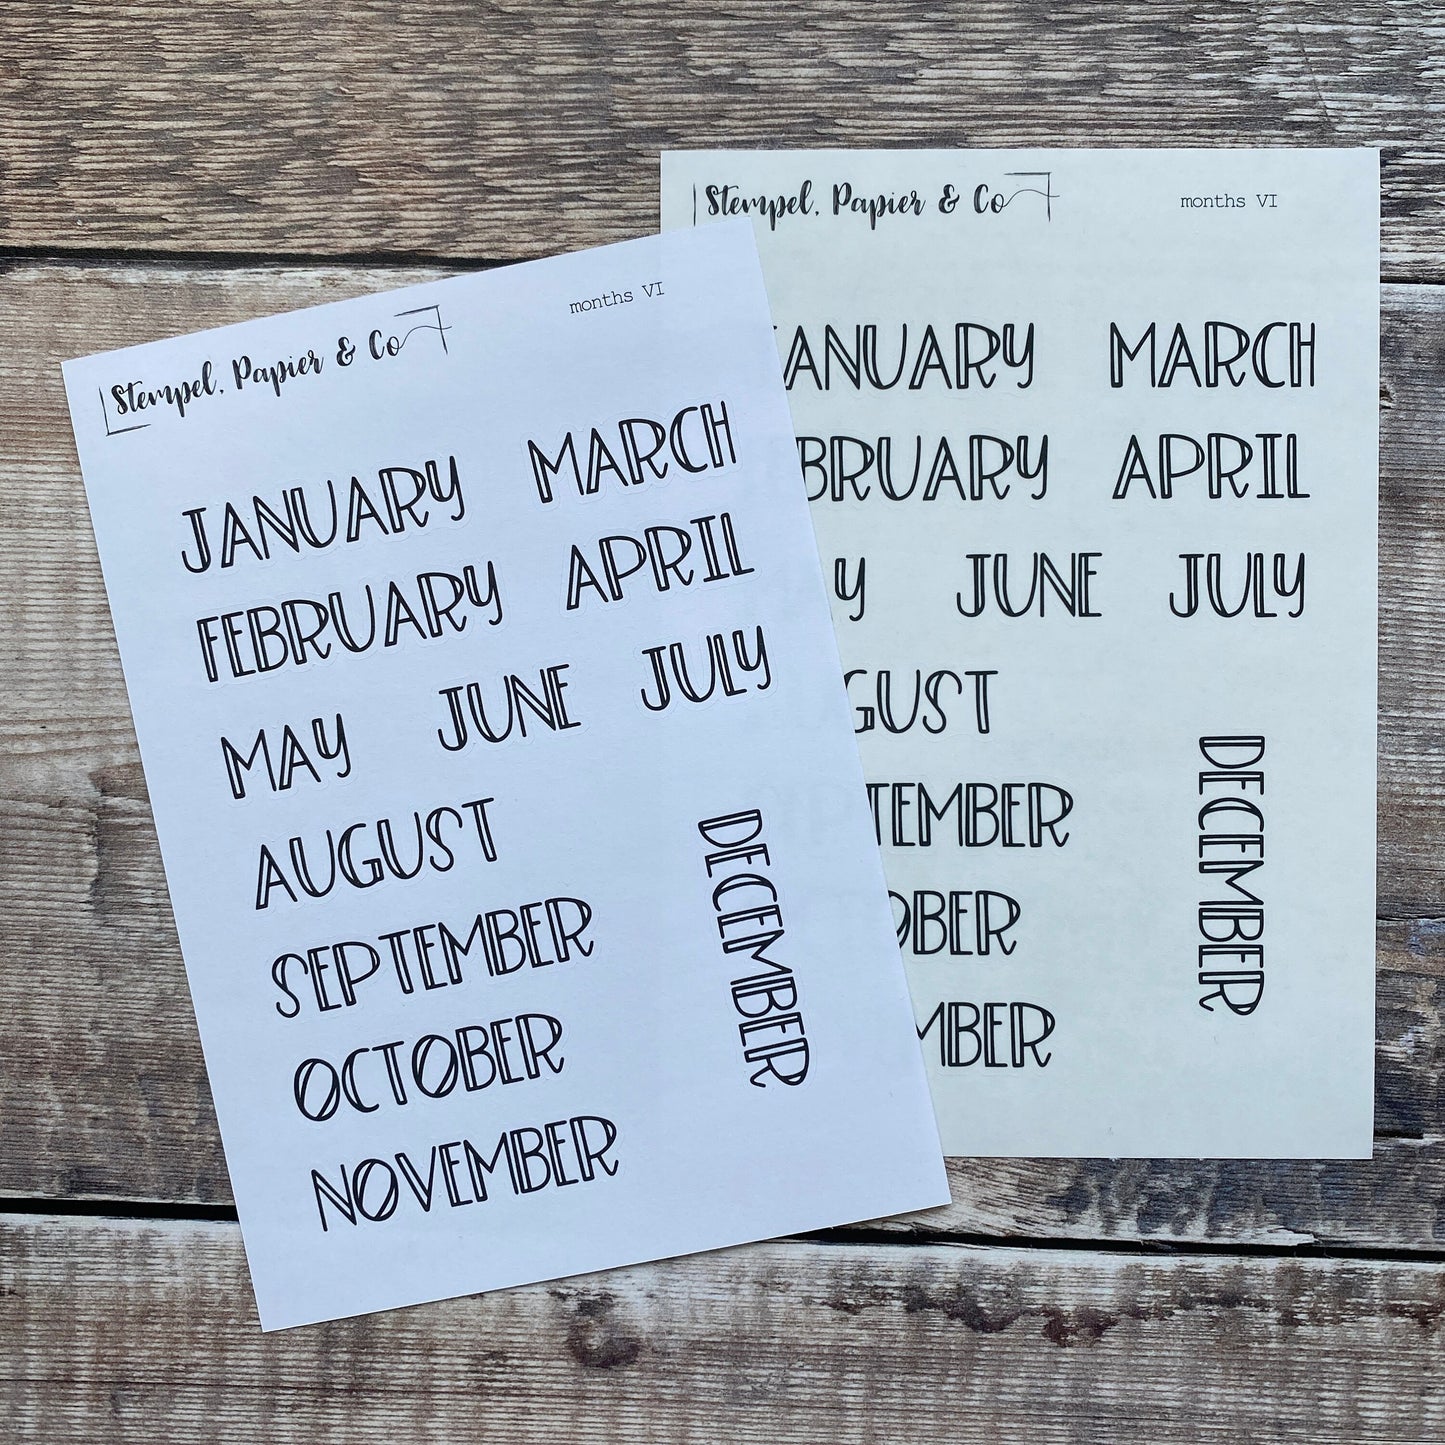 Stempel, Papier & Co
months VI
JANUARY MARCH
FEBRUARY APRIL
MAY JUNE JULY
AUGUST
SEPTEMBER
OCTOBER
NOVEMBER
DECEMBER
Stempel, Papier & Co
months VI
ANUARY MARCH
BRUARY APRIL
Y JUNE JULY
GUST
TEMBER
OBER
MBER
DECEMBER